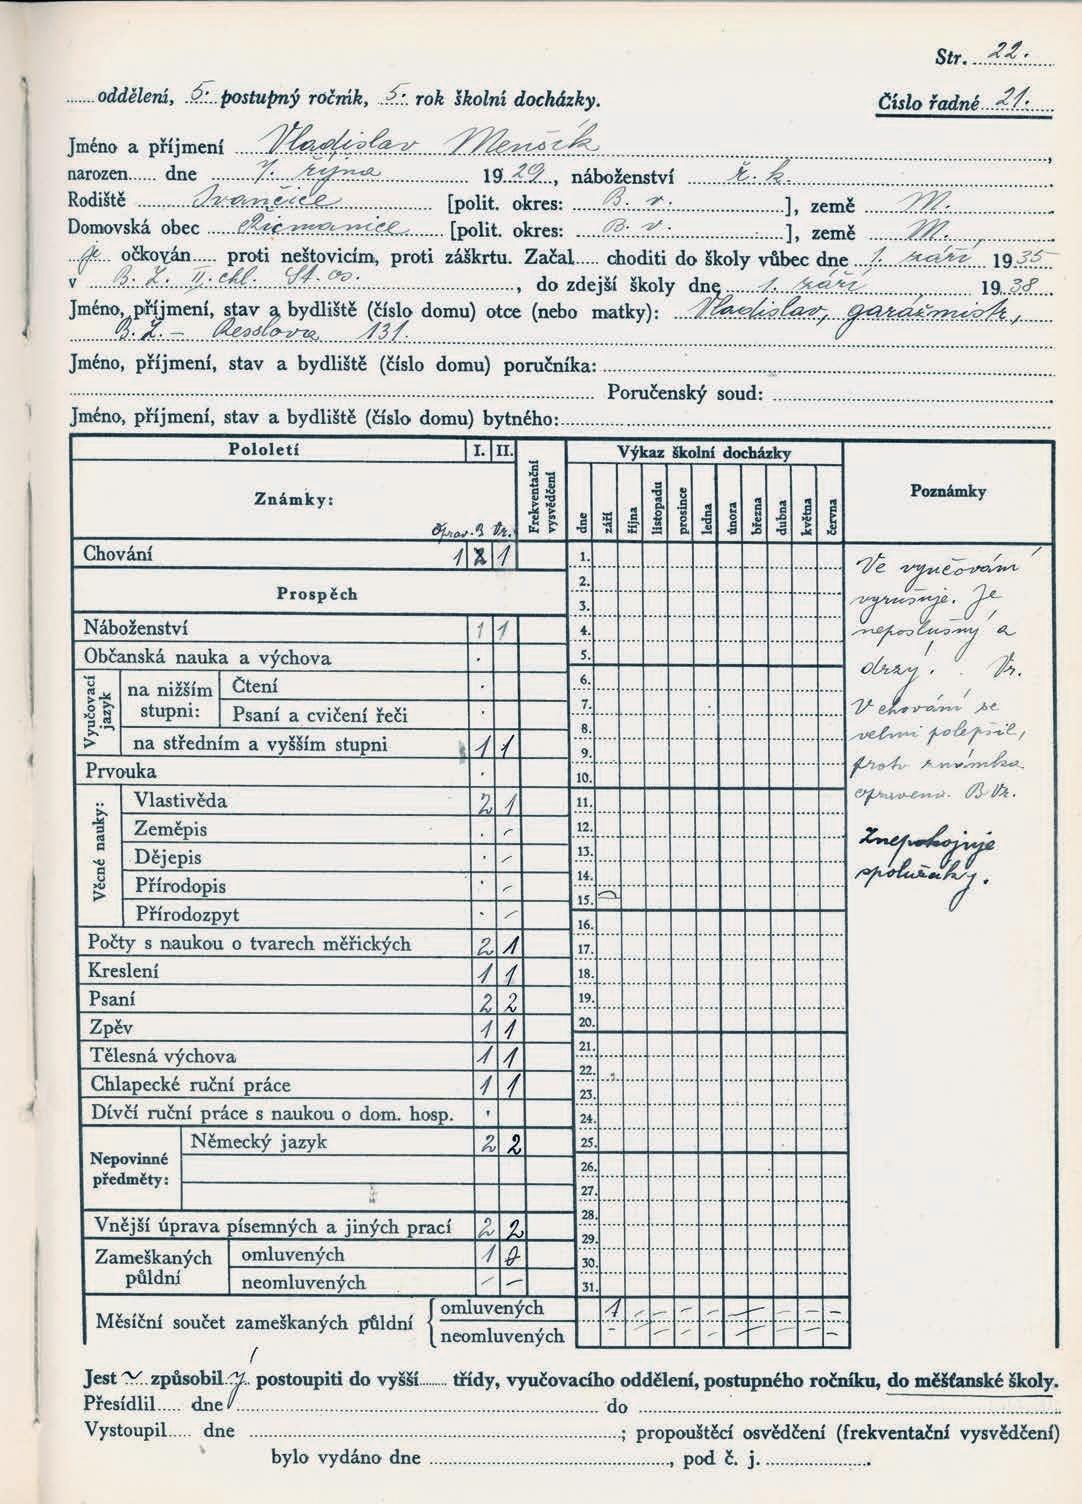 Str. 22.
oddělení, 5. postupný ročník, 5. rok školní docházky.
Číslo řadné 21.
Jméno a příjmení Vladislav Menšík,
narozen dne 7. října 1929, náboženství ř. k.
Rodiště Ivančice [polit. okres: B. v. ], země M.
Domovská obec Řícmanice [polit. okres: B. v. ], země M.
je očkován proti neštovicím, proti záškrtu. Začal choditi do školy vůbec dne 1. září 1935
v B. Z. II. chl. St. os., do zdejší školy dne 1. září 1938.
Jméno, příjmení, stav a bydliště (číslo domu) otce (nebo matky): Vladislav, garážmistr,
B. Z. – Resslova 131.
Jméno, příjmení, stav a bydliště (číslo domu) poručníka:
Poručenský soud:
Jméno, příjmení, stav a bydliště (číslo domu) bytného:
Pololetí I. II.
Známky:
Oprav. B Vr.
Frekventační vysvědčení
Výkaz školní docházky
dne září října listopadu prosince ledna února března dubna května června
Poznámky
Chování 1 2 1
Prospěch
Náboženství 1 1
Občanská nauka a výchova .
Vyučovací jazyk
na nižším stupni:
Čtení .
Psaní a cvičení řeči .
na středním a vyšším stupni 1 1
Prvouka .
Věcné nauky:
Vlastivěda 2 1
Zeměpis . -
Dějepis . -
Přírodopis . -
Přírodozpyt . -
Počty s naukou o tvarech měřických 2 1
Kreslení 1 1
Psaní 2 2
Zpěv 1 1
Tělesná výchova 1 1
Chlapecké ruční práce 1 1
Dívčí ruční práce s naukou o dom. hosp. .
Nepovinné předměty:
Německý jazyk 2 2
Vnější úprava písemných a jiných prací 2 2
Zameškaných půldní
omluvených 1 0
neomluvených - -
Měsíční součet zameškaných půldní
omluvených 1 - - - - - - - - -
neomluvených - - - - - - - - - -
1.
2.
3.
4.
5.
6.
7.
8.
9.
10.
11.
12.
13.
14.
15.
16.
17.
18.
19.
20.
21.
22.
23.
24.
25.
26.
27.
28.
29.
30.
31.
Ve vyučování
vyrušuje. Je
neposlušný a
drzý. Vr.
V chování se
velmi polepšil,
proto známka
opravena. B Vr.
Znepokojuje
spolužáky.
Jest způsobilý postoupiti do vyšší třídy, vyučovacího oddělení, postupného ročníku, do měšťanské školy.
Přesídlil dne do
Vystoupil dne ; propouštěcí osvědčení (frekventační vysvědčení)
bylo vydáno dne , pod č. j. .